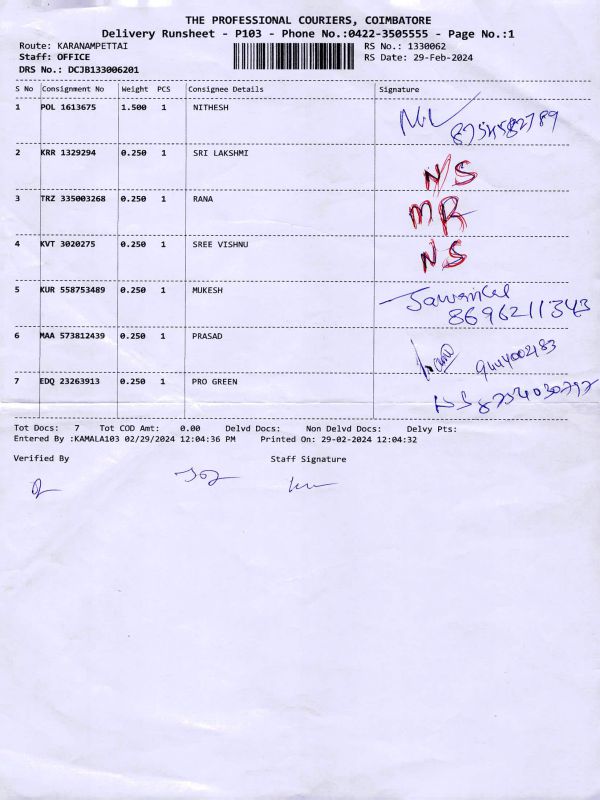 THE PROFESSIONAL COURIERS, COIMBATORE
Delivery Runsheet - P103 - Phone No.:0422-3505555 - Page No.:1
Route: KARANAMPETTAI RS No.: 1330062
Staff: OFFICE RS Date: 29-Feb-2024
DRS No.: DCJB133006201
S No Consignment No Weight PCS Consignee Details Signature
1 POL 1613675 1.500 1 NITHESH
8754582789
2 KRR 1329294 0.250 1 SRI LAKSHMI
N/S
3 TRZ 335003268 0.250 1 RANA
MR
4 KVT 3020275 0.250 1 SREE VISHNU
NS
5 KUR 558753489 0.250 1 MUKESH
8696211343
6 MAA 573812439 0.250 1 PRASAD
7 EDQ 23263913 0.250 1 PRO GREEN
Tot Docs: 7 Tot COD Amt: 0.00 Delvd Docs: Non Delvd Docs: Delvy Pts:
Entered By :KAMALA103 02/29/2024 12:04:36 PM Printed On: 29-02-2024 12:04:32
Verified By Staff Signature